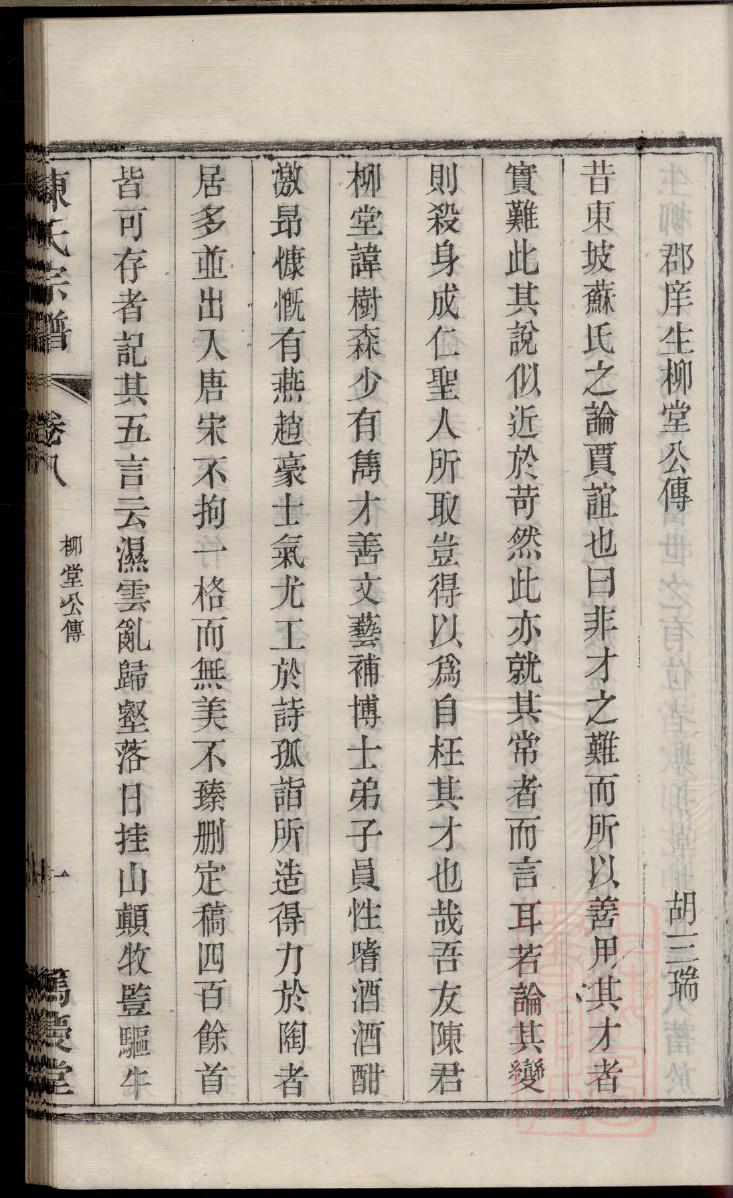 郡庠生柳堂公傳　胡三瑞
昔東坡蘇氏之論賈誼也曰非才之難而所以善用其才者
實難此其說似近於苛然此亦就其常者而言耳若論其變
則殺身成仁聖人所取豈得以爲自枉其才也哉吾友陳君
柳堂諱樹森少有雋才善文藝補博士弟子員性嗜酒酒酣
激昂慷慨有燕趙豪士氣尤工於詩孤詣所造得力於陶者
居多並出入唐宋不拘一格而無美不臻刪定稿四百餘首
皆可存者記其五言云濕雲亂歸壑落日挂山顚牧豎驅牛
陳氏宗譜
卷八
柳堂公傳
一
慶堂